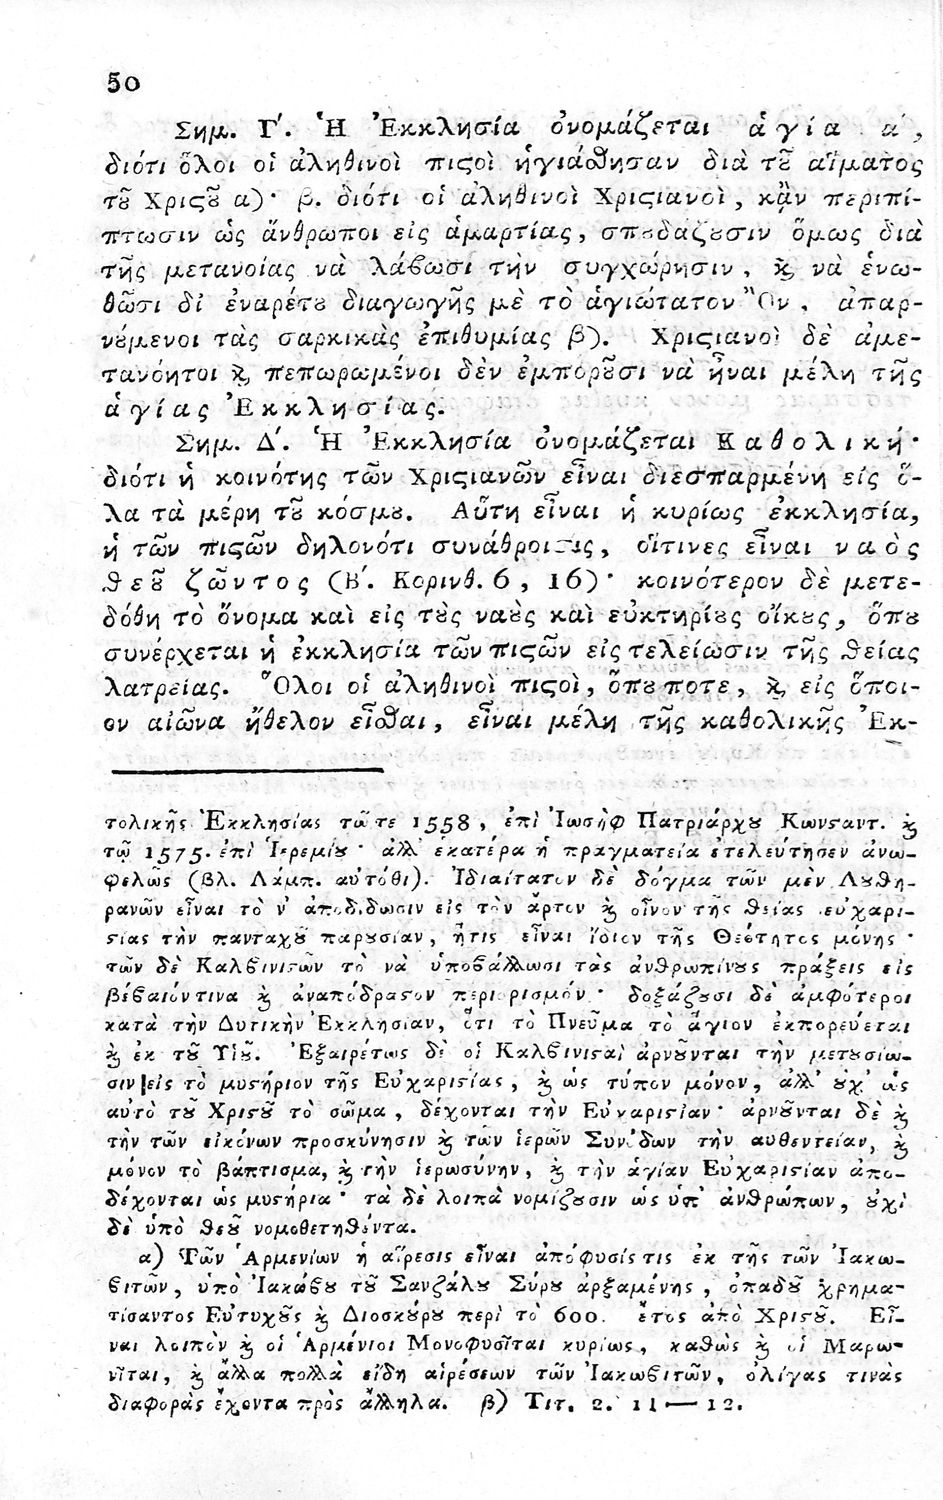 50
Σημ. Γ΄. Ἡ Ἐκκλησία ὀνομάζεται ἁγία α΄,
διότι ὅλοι οἱ ἀληθινοὶ πιςοὶ ἡγιάσθησαν διὰ τȣ͂ αἵματος
τȣ͂ Χριςȣ͂ α)· β. διότι οἱ ἀληθινοὶ Χριςιανοὶ, κᾂν περιπί-
πτωσιν ὡς ἄνθρωποι εἰς ἁμαρτίας, σπȣδαζȣσιν ὅμως διὰ
τῆς μετανοίας νὰ λάβωσι τὴν συγχώρησιν, ϗ νὰ ἑνω-
θῶσι δἰ ἐναρέτȣ διαγωγῆς μὲ τὸ ἁγιώτατον Ὂν, ἀπαρ-
νȣ́μενοι τὰς σαρκικὰς ἐπιθυμίας β). Χριςιανοὶ δὲ ἀμε-
τανόητοι ϗ πεπωρωμένοι δὲν ἐμπορȣ͂σι νὰ ἦναι μέλη τῆς
ἁγίας Ἐκκλησίας.
Σημ. Δ΄. Ἡ Ἐκκλησία ὀνομάζεται Καθολική·
διότι ἡ κοινότης τῶν Χριςιανῶν εἶναι διεσπαρμένη εἰς ὅ-
λα τὰ μέρη τȣ͂ κόσμȣ. Αὕτη εἶναι ἡ κυρίως ἐκκλησία,
ἡ τῶν πιςῶν δηλονότι συνάθροισις, οἵτινες εἶναι ναὸς
Θεȣ͂ ζῶντος (Β΄. Κορινθ. 6, 16)· κοινότερον δὲ μετε-
δόθη τὸ ὄνομα καὶ εἰς τȣ̀ς ναȣ̀ς καὶ εὐκτηρίȣς οἴκȣς, ὅπȣ
συνέρχεται ἡ ἐκκλησία τῶν πιςῶν εἰς τελείωσιν τῆς θείας
λατρείας. Ὅλοι οἱ ἀληθινοὶ πιςοὶ, ὅπȣ ποτε, ϗ εἰς ὅποι-
ον αἰῶνα ἤθελον εἶσθαι, εἶναι μέλη τῆς καθολικῆς Ἐκ-
τολικῆς Ἐκκλησίας τῷ τε 1558, ἐπὶ Ἰωσὴφ Πατριάρχȣ Κωνςαντ. ϗ
τῷ 1575. ἐπὶ Ἱερεμίȣ· ἀλλ' ἑκατέρα ἡ πραγματεία ἐτελεύτησεν ἀνω-
φελῶς (βλ. Λάμπ. αὐτόθι). Ἰδιαίτατον δὲ δόγμα τῶν μὲν Λȣθη-
ρανῶν εἶναι τὸ ν' ἀποδίδωσιν εἰς τὸν ἄρτον ϗ οἶνον τῆς θείας εὐχαρι-
ςίας τὴν πανταχȣ͂ παρȣσίαν, ἥτις εἶναι ἴδιον τῆς Θεότητος μόνης·
τῶν δὲ Καλβινιςῶν τὸ νὰ ὑποβάλλωσι τὰς ἀνθρωπίνȣς πράξεις εἰς
βέβαιόν τινα ϗ ἀναπόδραςον περιορισμόν· δοξάζȣσι δὲ ἀμφότεροι
κατὰ τὴν Δυτικὴν Ἐκκλησίαν, ὅτι τὸ Πνεῦμα τὸ ἅγιον ἐκπορεύεται
ϗ ἐκ τȣ͂ Υἱȣ͂. Ἐξαιρέτως δὲ οἱ Καλβινιςαὶ ἀρνȣ͂νται τὴν μετȣσίω-
σιν εἰς τὸ μυςήριον τῆς Εὐχαριςίας, ϗ ὡς τύπον μόνον, ἀλλ' ȣ̓χ' ὡς
αὐτὸ τȣ͂ Χριςȣ͂ τὸ σῶμα, δέχονται τὴν Εὐχαριςίαν· ἀρνȣ͂νται δὲ ϗ
τὴν τῶν εἰκόνων προσκύνησιν ϗ τῶν ἱερῶν Συνόδων τὴν αυθεντείαν, ϗ
μόνον τὸ βάπτισμα, ϗ τὴν ἱερωσύνην, ϗ τὴν ἁγίαν Εὐχαριςίαν ἀπο-
δέχονται ὡς μυςήρια· τὰ δὲ λοιπὰ νομίζȣσιν ὡς ὑπ' ἀνθρώπων, ȣ̓χὶ
δὲ ὑπὸ Θεȣ͂ νομοθετηθέντα.
α) Τῶν Ἀρμενίων ἡ αἵρεσις εἶναι ἀπόφυσίς τις ἐκ τῆς τῶν Ἰακω-
βιτῶν, ὑπὸ Ἰακώβȣ τȣ͂ Σανζάλȣ Σύρȣ ἀρξαμένης, ὀπαδȣ͂ χρημα-
τίσαντος Εὐτυχȣ͂ς ϗ Διοσκόρȣ περὶ τὸ 600. ἔτος ἀπὸ Χριςȣ͂. Εἶ-
ναι λοιπὸν ϗ οἱ Ἀρμένιοι Μονοφυσῖται κυρίως, καθὼς ϗ οἱ Μαρω-
νῖται, ϗ ἄλλα πολλὰ εἴδη αἱρέσεων τῶν Ἰακωβιτῶν, ὀλίγας τινὰς
διαφορὰς ἔχοντα πρὸς ἄλληλα. β) Τιτ. 2. 11 — 12.